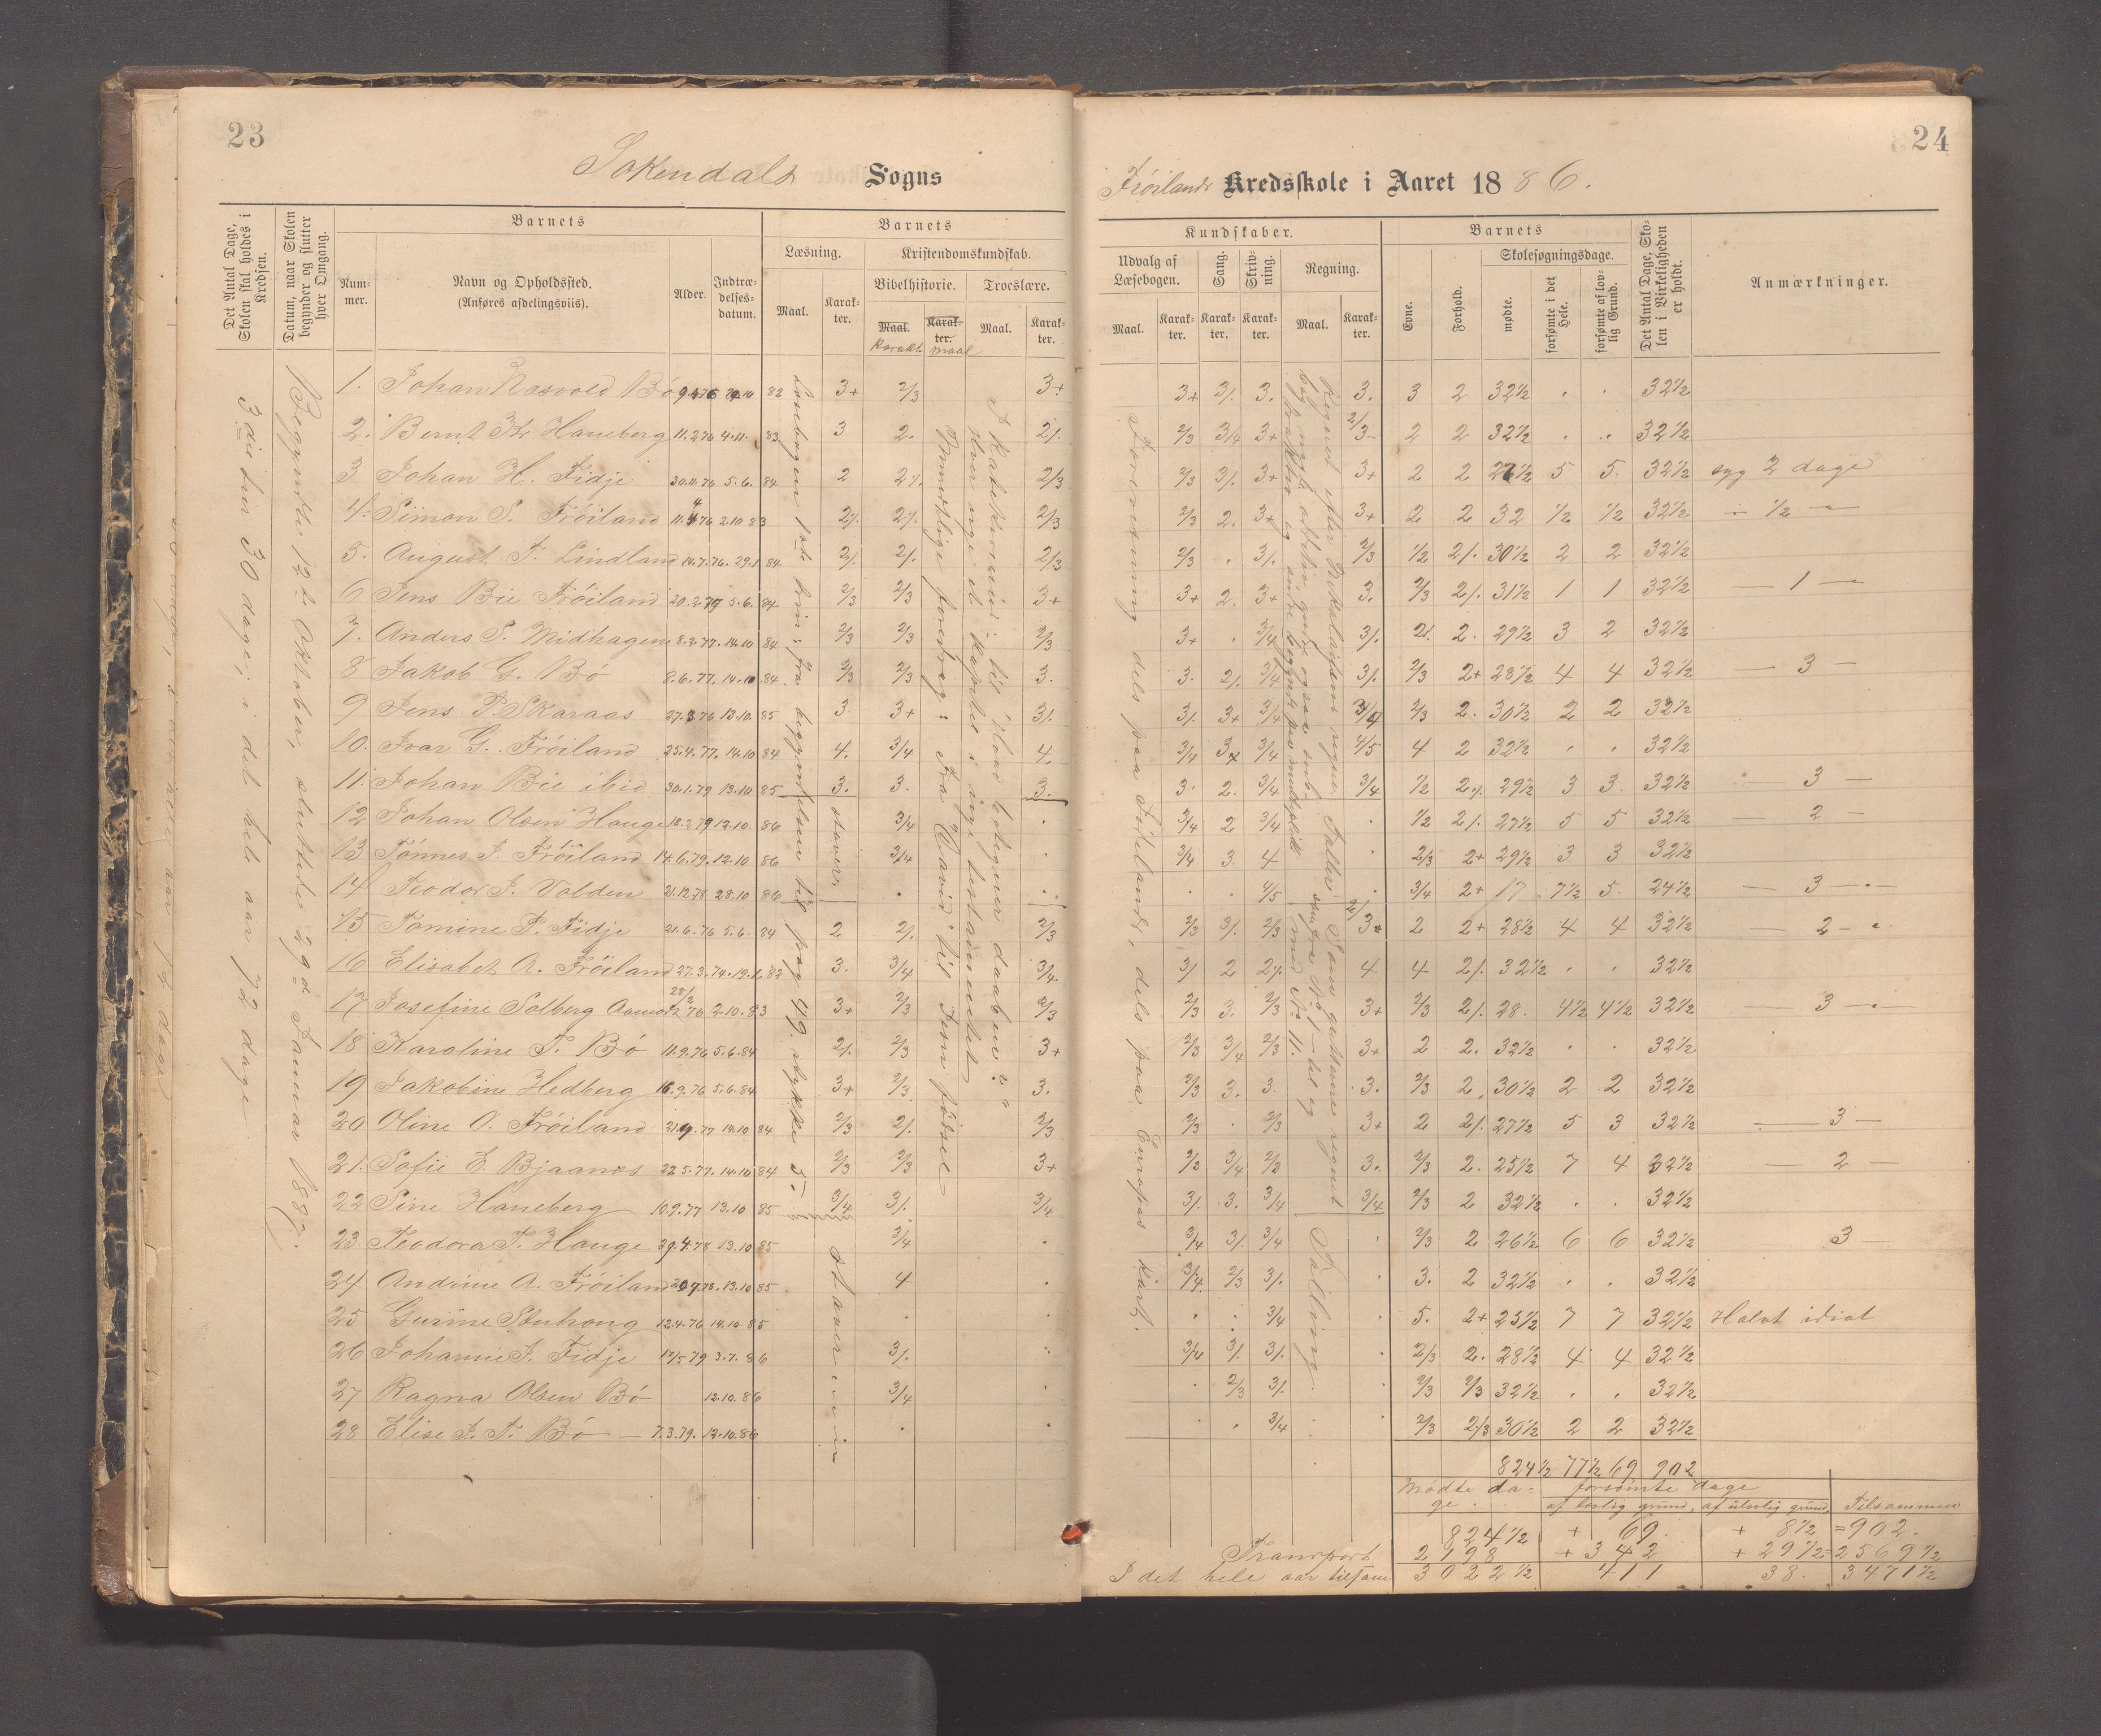 23
24
Sokendals Sogns
Frøilands Kredsskole i Aaret 1886.
Det Antal Dage, Skolen skal holdes i Kredsen.
Datum, naar Skolen begynder og slutter hver Omgang.
Barnets
Nummer.
Navn og Opholdssted.
(Anføres afdelingsviis).
Alder.
Indtrædelsesdatum.
Barnets
Læsning.
Maal.
Karakter.
Kristendomskundskab.
Bibelhistorie.
Maal.
Karakter.
Karakt.
maal
Troeslære.
Maal.
Karakter.
Kundskaber.
Udvalg af Læsebogen.
Maal.
Karakter.
Sang.
Karakter.
Skrivning.
Karakter.
Regning.
Maal.
Karakter.
Barnets
Evne.
Forhold.
Skolesøgningsdage.
mødte.
forsømte i det Hele.
forsømte af lovlig Grund.
Det Antal Dage, Skolen i Virkeligheden er holdt.
Anmærkninger.
3die ten 30 dage; i det hele aar 72 dage
Begyndte 12te Oktober, sluttede 29de Januar 1887.
Læsebogen 1ste trin: fra begyndelsen til pag 49. stykke 5.
staver.
staver
Mundtlige foredrag: Fra David til Jesu fødsel
Forevisning dels paa Jødelands, dels paa Europas kart.
Tælling.
1. Johan Næsvold Bø 3+ 2/3 3+ 3+ 3/. 3. 3. 3 2 32½ . . 32½
2. Bernt Kr Haneberg 11.2.76 4.11. 83 3 2. 2/. 2/3 3/4 3+ 2/3- 2 2 32½ . . 32½
3 Johan H. Fidje 30.11.76 5.6. 84 2 2/. 2/3 2/3 3/. 3+ 3+ 2 2 27½ 5 5. 32½ syg 2 dage
4. Simon S. Frøiland 11.4.76 2.10 83 2/. 2/. 2/3 2/3 2. 3+ 3+ 2 2 32 ½ ½ 32½ ½
5. August T. Lindland 14.7.76. 29.1 84 2/. 2/. 2/3 2/3 . 3/. 2/3 ½ 2/. 30½ 2 2 32½
6 Jens Bie Frøiland 20.2.77 5.6. 84 2/3 2/3 3+ 3+ 2. 3+ 3. 2/3 2/. 31½ 1 1 32½ — 1 —
7. Anders S. Midhagene 8.2.77. 14.10 84 2/3 2/3 2/3 3+ . 3/4 3/. 2/. 2. 29½ 3 2 32½
8 Jakob G. Bø 8.6.77. 14.10. 84. 2/3 2/3 3. 3. 2/. 3/4 3/. 2/3 2+ 28½ 4 4 32½ — 3 —
9 Jens P. Skaraas 27.3.76 13.10. 85 3. 3+ 3/. 3/. 3+ 3/4 3/4 2/3 2. 30½ 2 2 32½
10. Ivar G. Frøiland 25.4.77. 14.10 84 4. 3/4 4. 3/4 3+ 3/4 4/5 4 2 32½ . . 32½
11. Johan Bie ibid 30.1.79 13.10 85 3. 3. 3. 3. 2. 3/4 3/4 ½ 2/. 29½ 3 3. 32½ — 3 —
12 Johan Olsen Hauge 18.2.79 12.10. 86 3/4 . 3/4 2 3/4 . ½ 2/. 27½ 5 5 32½ — 2 —
13 Tønnes J. Frøiland 14.6.79. 12.10 86 3/4 . 3/4 3. 4 . 2/3 2+ 29½ 3 3 32½
14 Teodor J. Valden 21.12.78 28.10 86 . . . . 4/5 . 3/4 2+ 17 7½ 5. 24½ — 3 —
15 Tomine P. Fidje 21.6.76 5.6. 84 2 2/. 2/3 2/3 3/. 2/3 2/3+ 2 2+ 28½ 4 4 32½ — 2 —
16 Elisabet A. Frøiland 27.3.74. 12.1. 82 3. 3/4 3/4 3/ 2 2/. 4 4 2/. 32½ . . 32½
17 Josefine Solberg 28/2 76 2.10. 83 3+ 2/3 2/3 2/3 3. 2/3 3+ 2/3 2/. 28. 4½ 4½ 32½ — 3 —
18 Karoline T. Bø 11.9.76 5.6.84 2/. 2/3 3+ 2/3 3/4 2/3 3+ 2 2. 32½ . . 32½
19 Jakobine Hedberg 16.9.76 5.6.84 3+ 2/3 3. 2/3 3. 3. 3. 2/3 2. 30½ 2 2 32½
20 Oline O. Frøiland 21.9.77 14.10 84 2/3 2/. 2/3 2/3 . 2/3 3+ 2 2/. 27½ 5 3 32½ — 3 —
21. Sofie E. Bjaanes 22.5.77. 14.10 84 2/3 2/3 3+ 2/3 3/4 2/3 3. 2/3 2. 25½ 7 4 32½ — 2 —
22 Sine Haneberg 10.9.77 13.10 85 3/4 3/. 3/4 3/. 3. 3/4 3/4 2/3 2 32½ . . 32½
23 Teodora T. Hauge 29.4.78 13.10 85 3/4 . 3/4 3/. 3/4 2/3 2 26½ 6 6 32½ 3 —
24. Andrine A. Frøiland 13.10 85 4 . 3/4 2/3 3/. . 3. 2 32½ . . 32½
25 Gurine Stuhong 12.4.76 14.10.85 . . . . 3/4 . 5. 2+ 25½ 7 7 32½ Halvt idiot
26 Johanne J. Fidje 17/5 79 3.7. 86 3/. . 3/4 3/. 3/. . 2/3 2. 28½ 4 4 32½
27 Ragna Olsen Bø 12.10.86 3/4 . . 2/3 3/. . 2/3 2/3 32½ . . 32½
28 Elise J. T. Bø — 7.3.79. 12.10.86 . . . . 3/4 . 2/3 2/3 30½ 2 2 32½
824½ 77½ 69 902
Mødte dage. forsømte dage
af lovlig grund, af ulovlig grund, Tilsammen
824½ + 69. + 8½ = 902.
Transport 2198 + 342 + 29½ = 2569½
I det hele aar tilsam 3022½ 411 38. 3471½